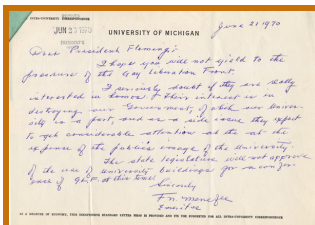 INTRA-UNIVERSITY CORRESPONDENCE
JUN 23 1970
PRESIDENT'S
UNIVERSITY OF MICHIGAN
June 21 1970
Dear President Fleming:
I hope you will not yield to the
pressure of the Gay Liberation Front.
I seriously doubt if they are really
interested in. Their interest is in
destroying our Government, of which our Univer-
sity is a part, and as a side issue they expect
to get considerable attention at the
expense of the public's image of the University.
The state legislature will not approve
of the use of University buildings for a confer-
ence of at this time.
Sincerely
AS A MEASURE OF ECONOMY, THIS STANDARD LETTER FORM IS PROVIDED AND TO BE USED FOR ALL INTRA-UNIVERSITY CORRESPONDENCE